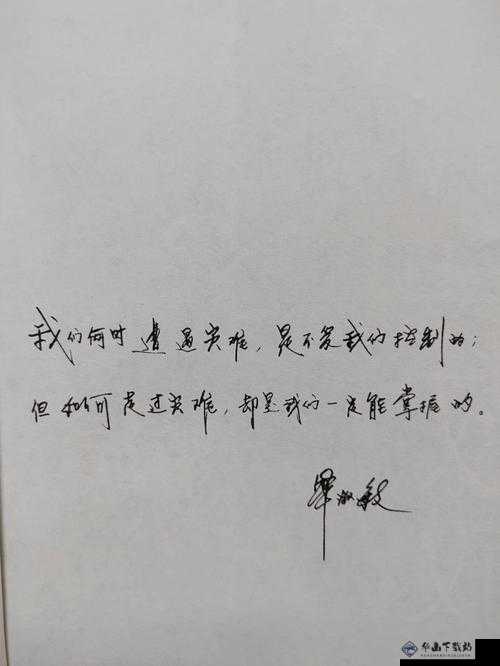 我们何时遭遇灾难，是不受我们控制的；
但如何走过灾难，却是我们一定能掌握的。
毕淑敏
华山下载站